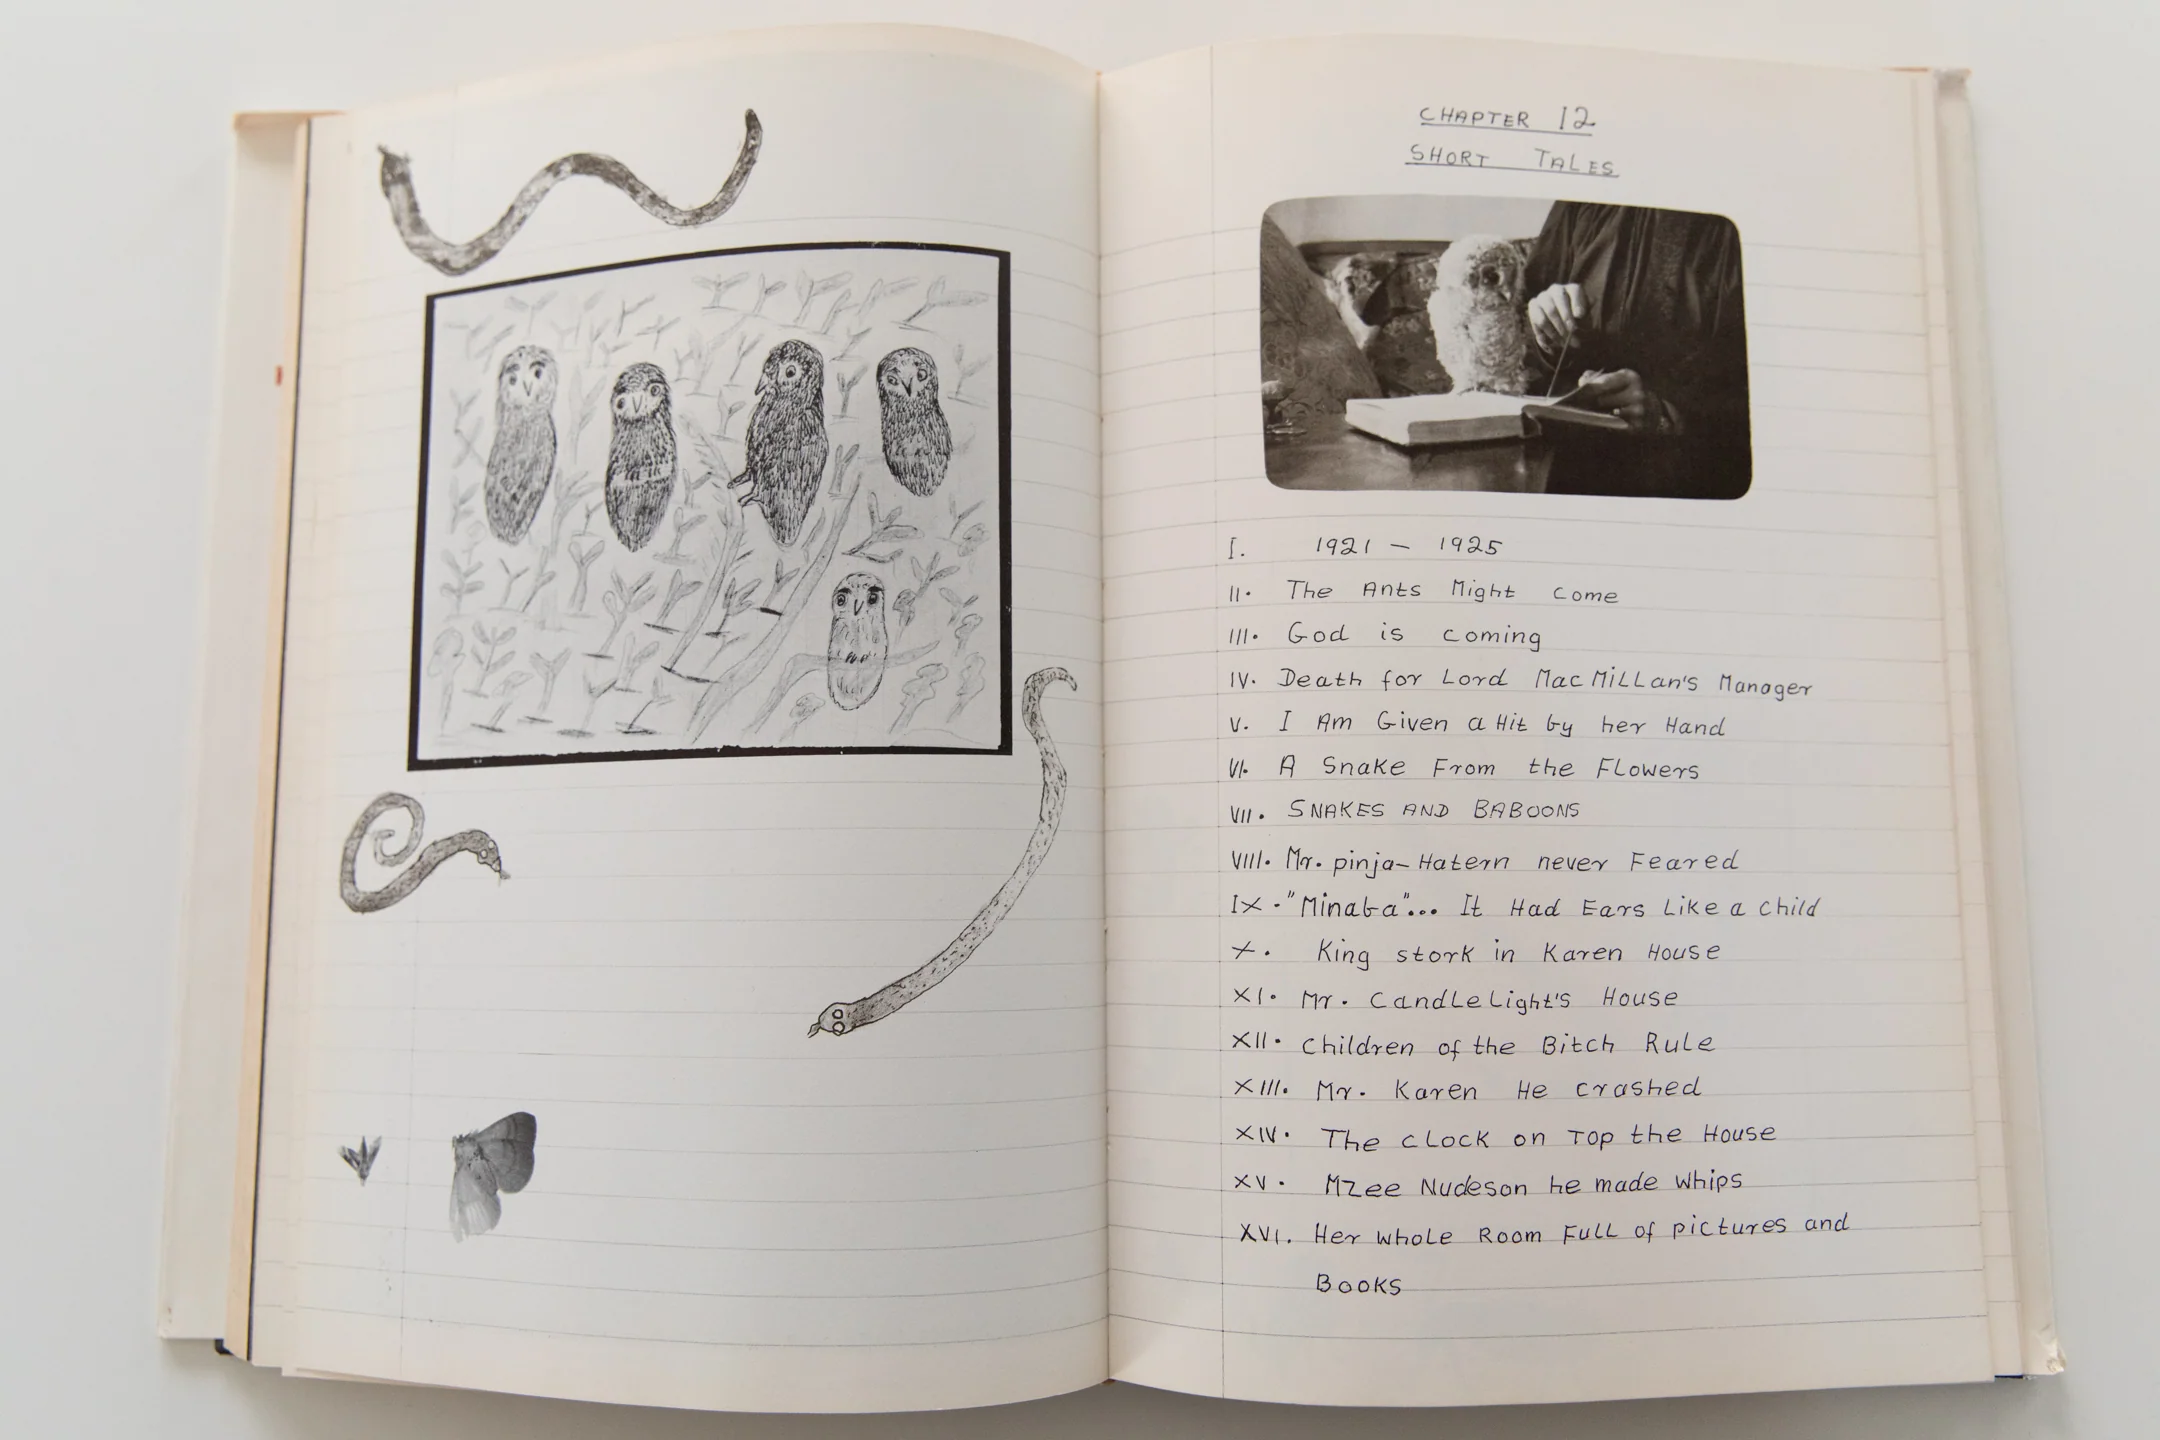 CHAPTER 12
SHORT TALES
I. 1921 - 1925
II. The Ants Might Come
III. God is Coming
IV. Death for Lord MacMiLLan's Manager
V. I Am Given a Hit by her Hand
VI. A Snake From the FLowers
VII. SNAKES AND BABOONS
VIII. Mr. pinja-Hatern never Feared
IX. "Minaba"... It Had Ears Like a Child
X. King stork in Karen House
XI. Mr. CandLeLight's House
XII. Children of the Bitch RuLe
XIII. Mr. Karen He crashed
XIV. The CLOCK on Top the House
XV. Mzee Nudeson he made whips
XVI. Her whoLe Room FuLL of pictures and
Books